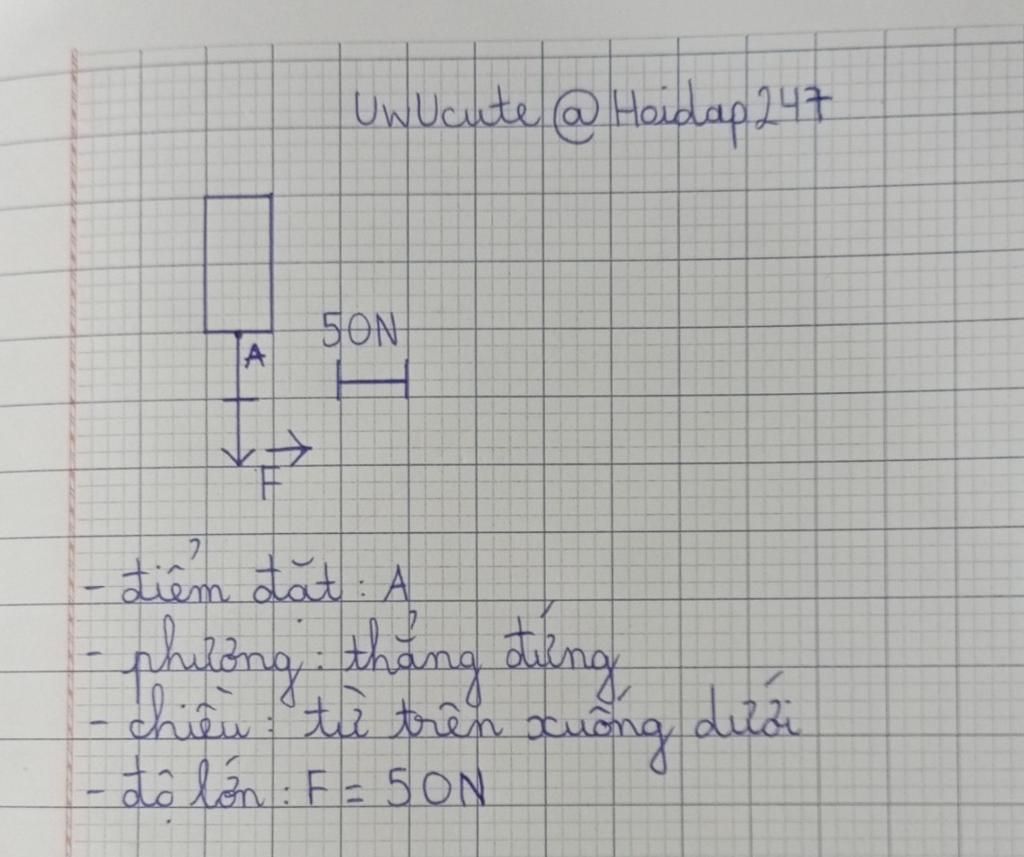 UwUcute @ Hoidap247
A
50N
F
- điểm đặt : A
- phương : thẳng đứng
- chiều : từ trên xuống dưới
- độ lớn : F = 50N